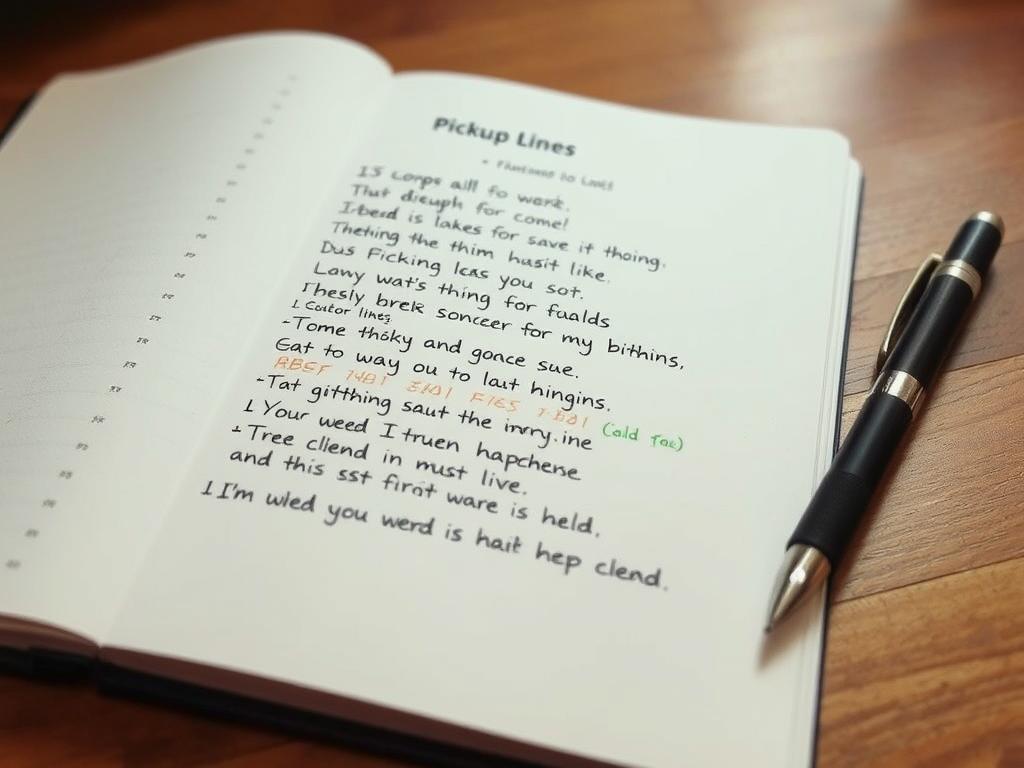 Pickup Lines
15 corps all fo wark.
That dieuph for come!
I-bead is lakes for save it thoing.
Thething the thim husit like.
Dus Ficking lcas you sot.
Lawy wat's thing for fualds
Thesly brek sonceer for my bithins,
1 Cautor lines
-Tome thoky and gonce sue.
Eat to way ou to laut hingins.
-Tat gifthing saut the inrry.ine (ald Tac)
1 Your weed I truen hapchene
+Tree cliend in must live.
and this sst firat ware is held,
1 I'm wled you werd is hait hep clend.